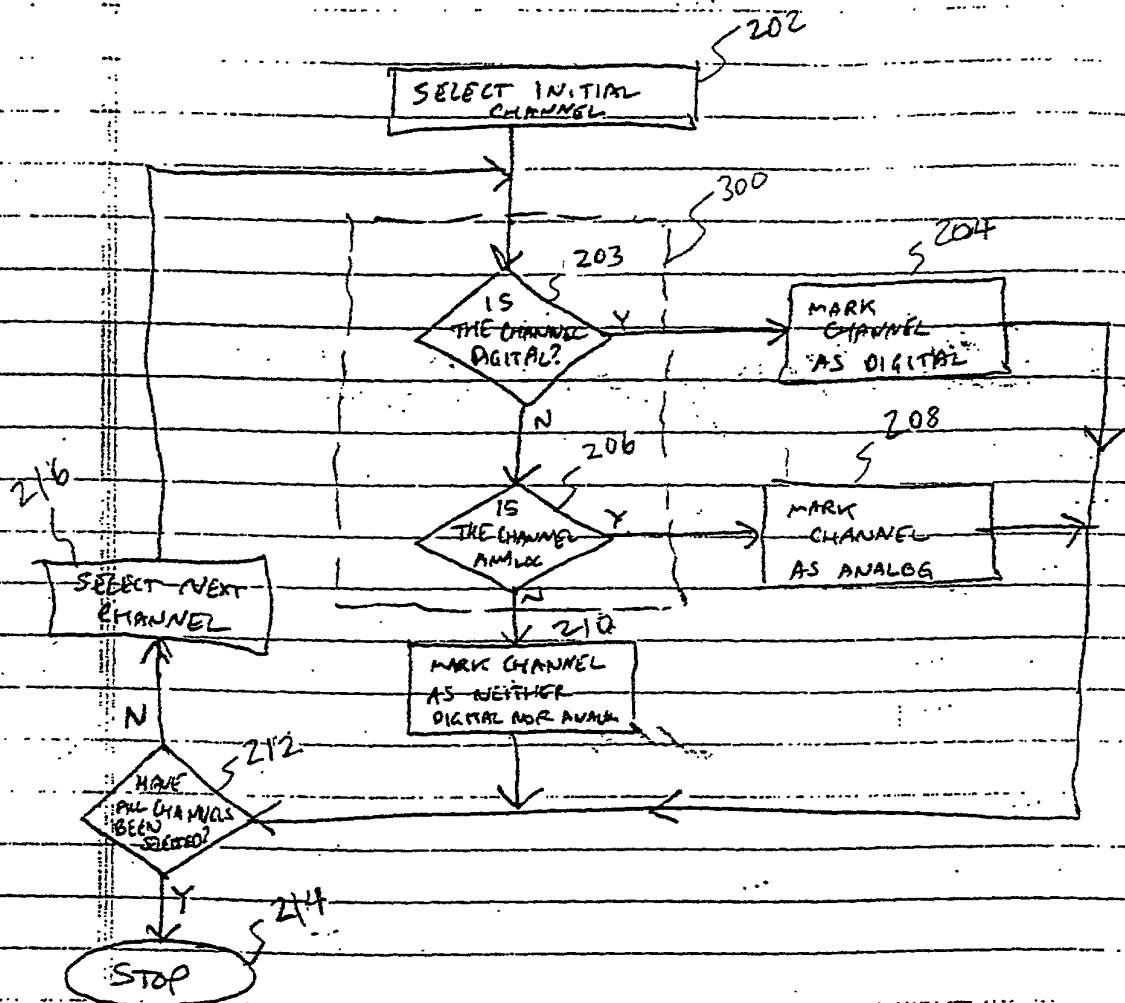 202
SELECT INITIAL
CHANNEL
300
203
204
IS
THE CHANNEL
DIGITAL?
Y
MARK
CHANNEL
AS DIGITAL
N
206
208
IS
THE CHANNEL
ANALOG
Y
MARK
CHANNEL
AS ANALOG
N
216
SELECT NEXT
CHANNEL
210
MARK CHANNEL
AS NEITHER
DIGITAL NOR ANALOG
N
212
HAVE
ALL CHANNELS
BEEN
SELECTED?
Y
214
STOP